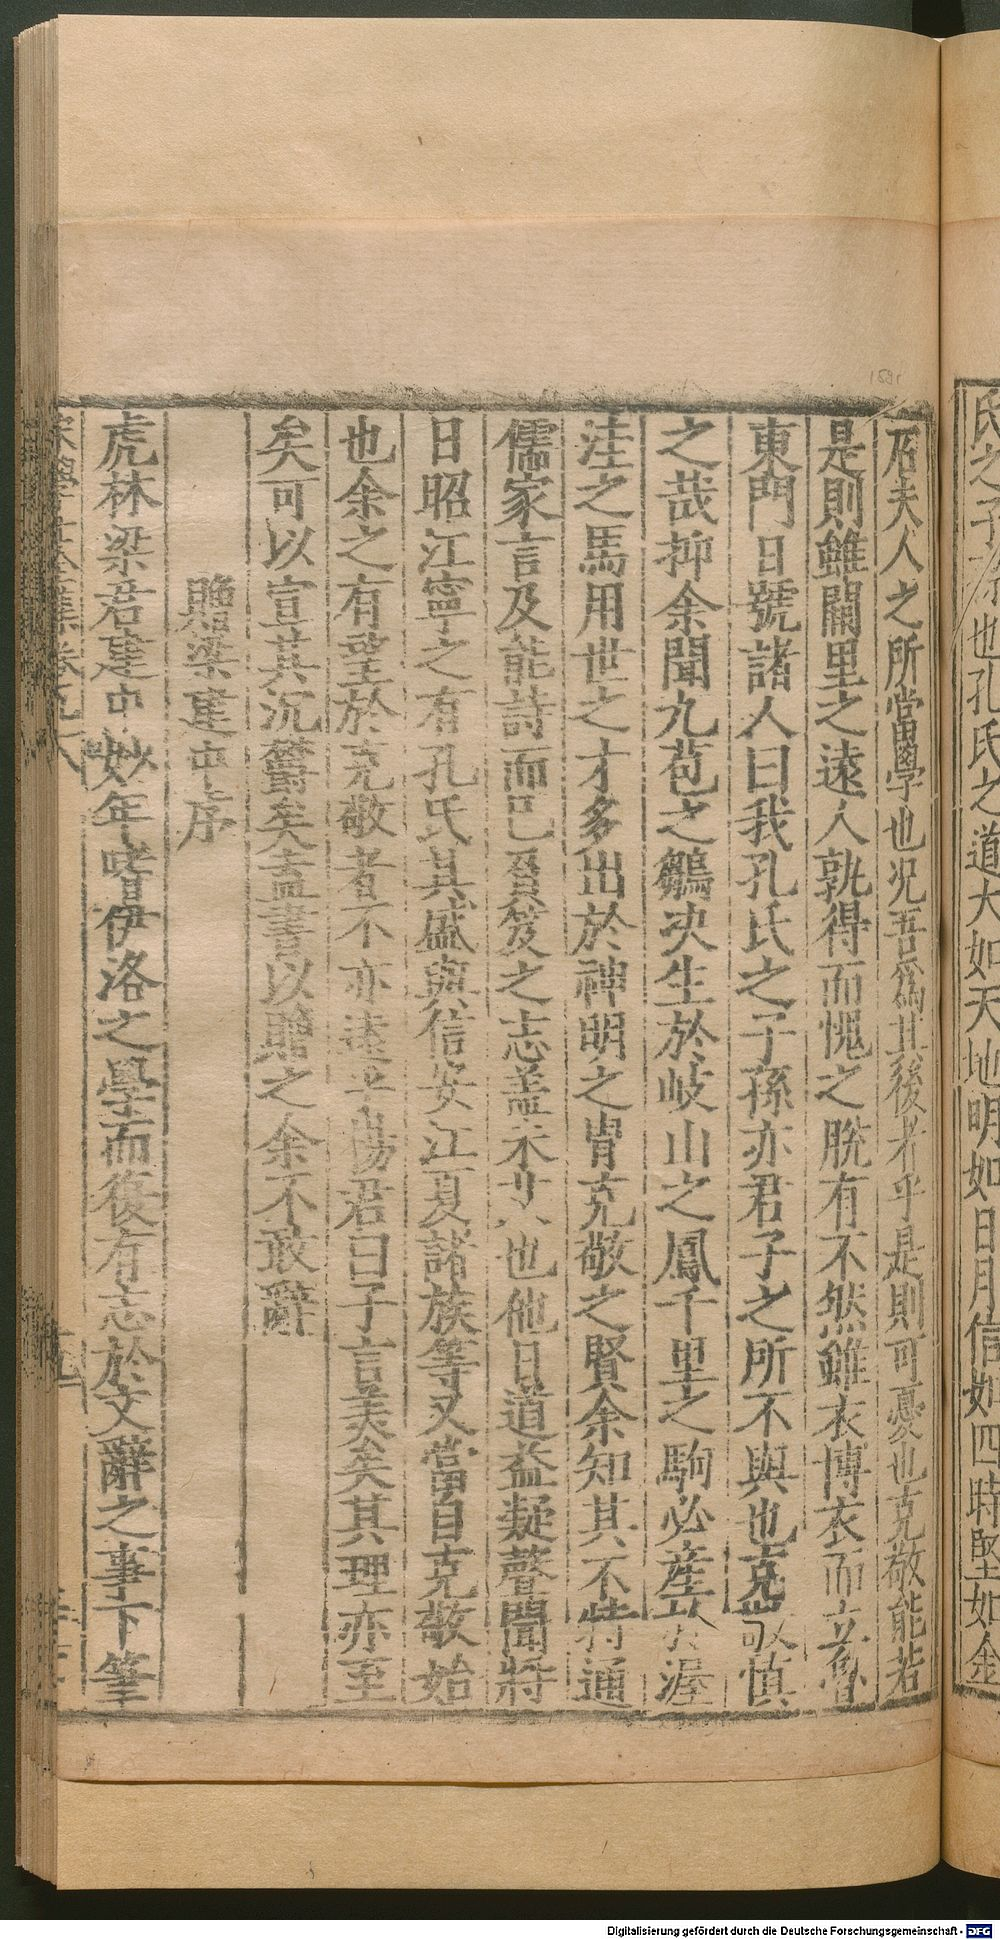 氏之子孫也孔氏之道大如天地明如日月信如四時堅如金
石夫人之所當學也况吾爲其後者乎是則可憂也克敬能若
是則雖闕里之遠人孰得而愧之脫有不然雖衣博衣而立魯
東門日號諸人曰我孔氏之子孫亦君子之所不與也克敬慎
之哉抑余聞九苞之鶵决生於岐山之鳳千里之駒必産於渥
洼之馬用世之才多出於神明之胄克敬之賢余知其不特通
儒家言及能詩而已負笈之志盖未艾也他日道益凝聲聞將
日昭江寧之有孔氏其盛與信安江夏諸族等又當自克敬始
也余之有望於克敬者不亦遠乎楊君曰子言美矣其理亦至
矣可以宣其沉鬱矣盍書以贈之余不敢辭
贈梁建中序
虎林梁君建中妙年嗜伊洛之學而復有志於文辭之事下筆
宋學士全集卷之八
Digitalisierung gefördert durch die Deutsche Forschungsgemeinschaft - DFG